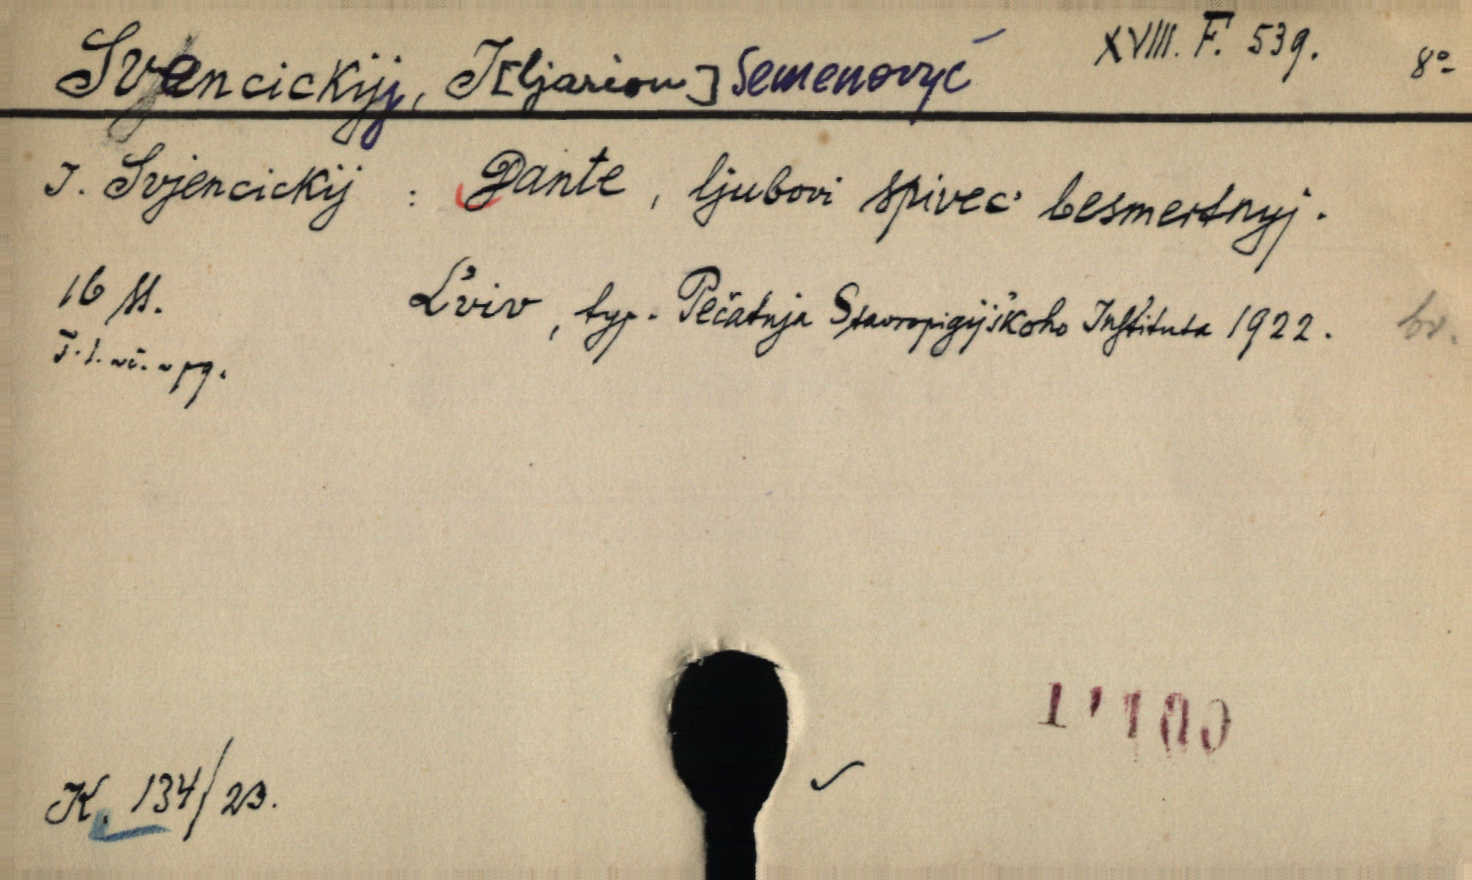 Svjencickijj, I[ljarion] Semenovyč XVIII. F. 539. 8º
I. Svjencickij : Dante, ljubovi spivec' besmertnyj.
16 SS. L'viv, typ. Pečatnja Stavropigijs'koho Instituta 1922. br.
K. 134/23.